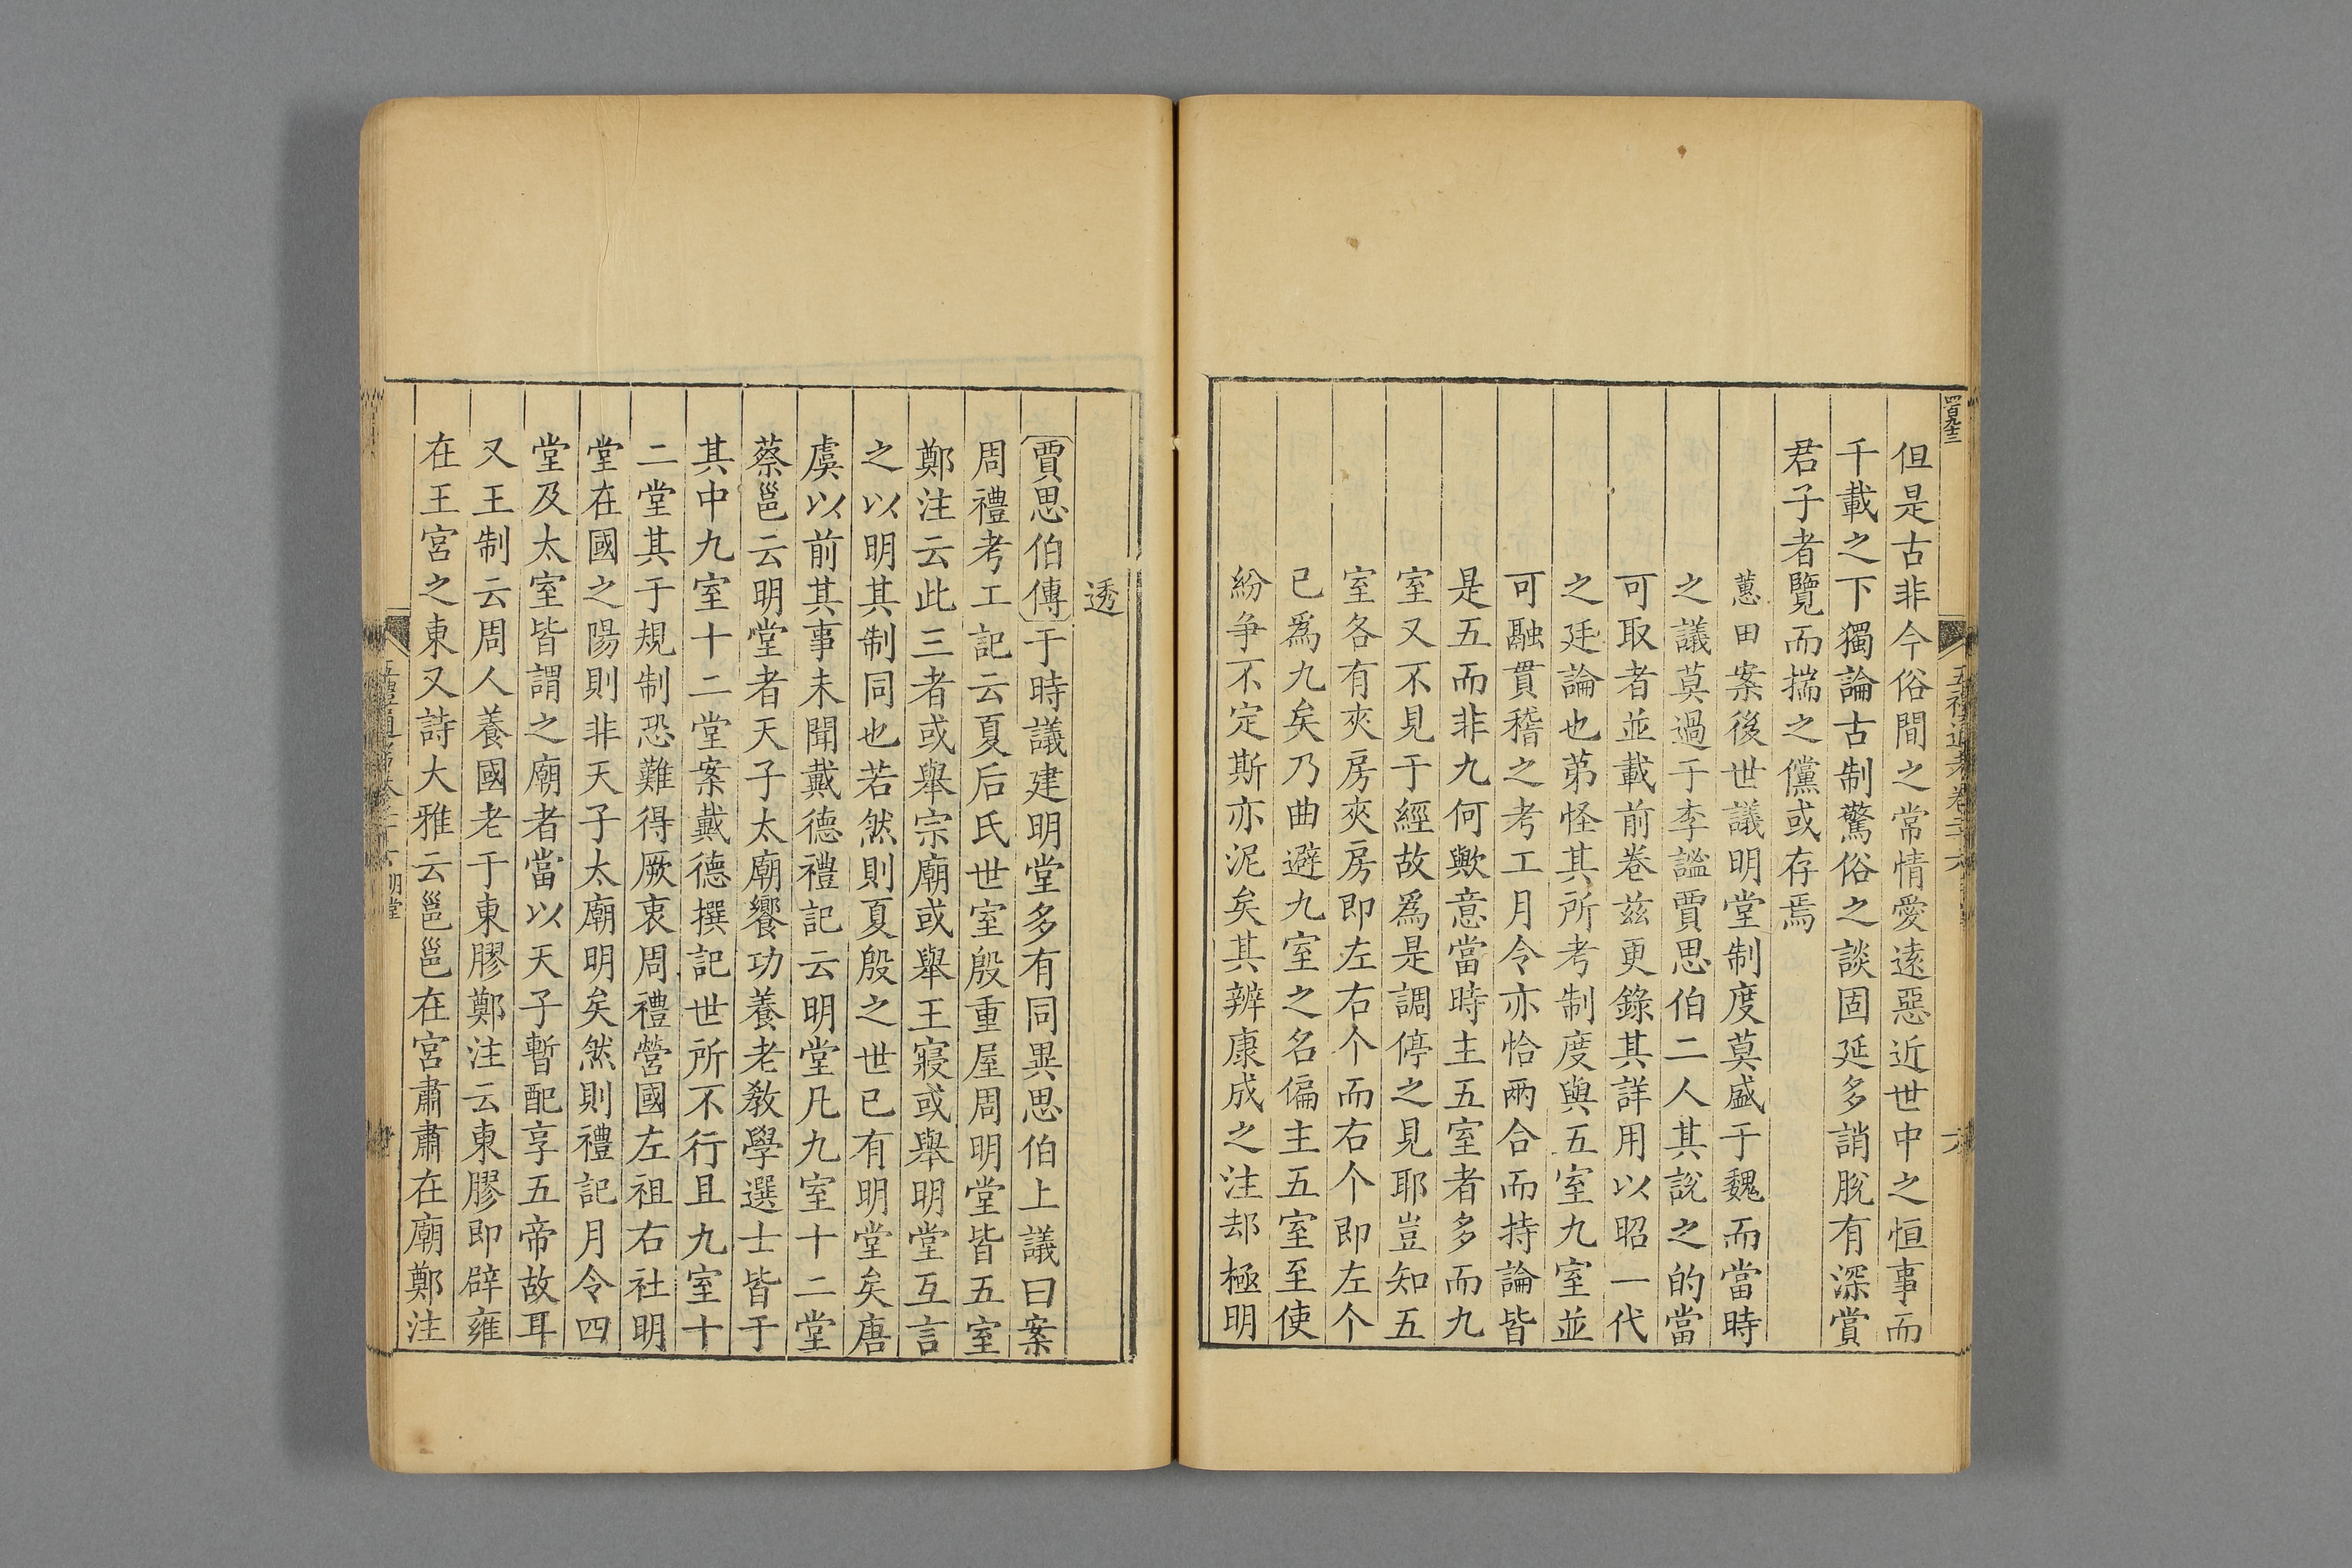 四百九十三
但是古非今俗間之常情愛遠惡近世中之恒事而
千載之下獨論古制驚俗之談固延多誚脫有深賞
君子者覽而揣之儻或存焉
蕙田案後世議明堂制度莫盛于魏而當時
之議莫過于李謐賈思伯二人其說之的當
可取者並載前卷兹更錄其詳用以昭一代
之廷論也苐怪其所考制度與五室九室並
可融貫稽之考工月令亦恰兩合而持論皆
是五而非九何歟意當時主五室者多而九
室又不見于經故爲是調停之見耶豈知五
室各有夾房夾房即左右个而右个即左个
已爲九矣乃曲避九室之名偏主五室至使
紛爭不定斯亦泥矣其辨康成之注却極明
透
賈思伯傳于時議建明堂多有同異思伯上議曰案
周禮考工記云夏后氏世室殷重屋周明堂皆五室
鄭注云此三者或舉宗廟或舉王寢或舉明堂互言
之以明其制同也若然則夏殷之世已有明堂矣唐
虞以前其事未聞戴德禮記云明堂凡九室十二堂
蔡邕云明堂者天子太廟饗功養老教學選士皆于
其中九室十二堂案戴德撰記世所不行且九室十
二堂其于規制恐難得厥衷周禮營國左祖右社明
堂在國之陽則非天子太廟明矣然則禮記月令四
堂及太室皆謂之廟者當以天子暫配享五帝故耳
又王制云周人養國老于東膠鄭注云東膠即辟雍
在王宮之東又詩大雅云邕邕在宮肅肅在廟鄭注